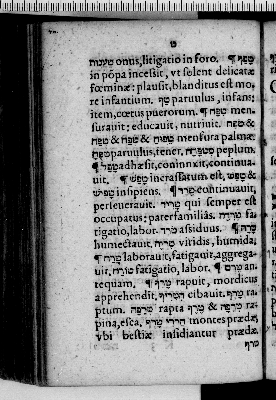 ט
onus, litigatio in foro.
in põpa incessit, vt solent delicatæ
fœminæ: plausit, blanditus est mo-
re infantium. טף paruulus, infans;
item, cœtus puerorum. טפח men-
surauit; educauit, nutriuit. טפח
& טפח & טפוח mensura palmæ
paruulus, tener. מטפחת peplum.
טפל adhæsit, coniunxit, continua-
uit. טפש incrassatum est. טפש
& טפש insipiens. טרד continuauit,
perseuerauit. טריד qui semper est
occupatus; paterfamiliâs. fa-
tigatio, labor. assiduus.
humectauit. viridis, humida;
laborauit, fatigauit, aggrega-
uit. טורח fatigatio, labor. טרם an-
tequam. טרף rapuit, mordicus
apprehendit. הטריף cibauit. טרף ra-
ptum. טרפה rapta טרף & טרפה ra-
pina, esca. הררי טרף montes prædæ,
vbi bestiæ insidiantur prædæ.
טרף